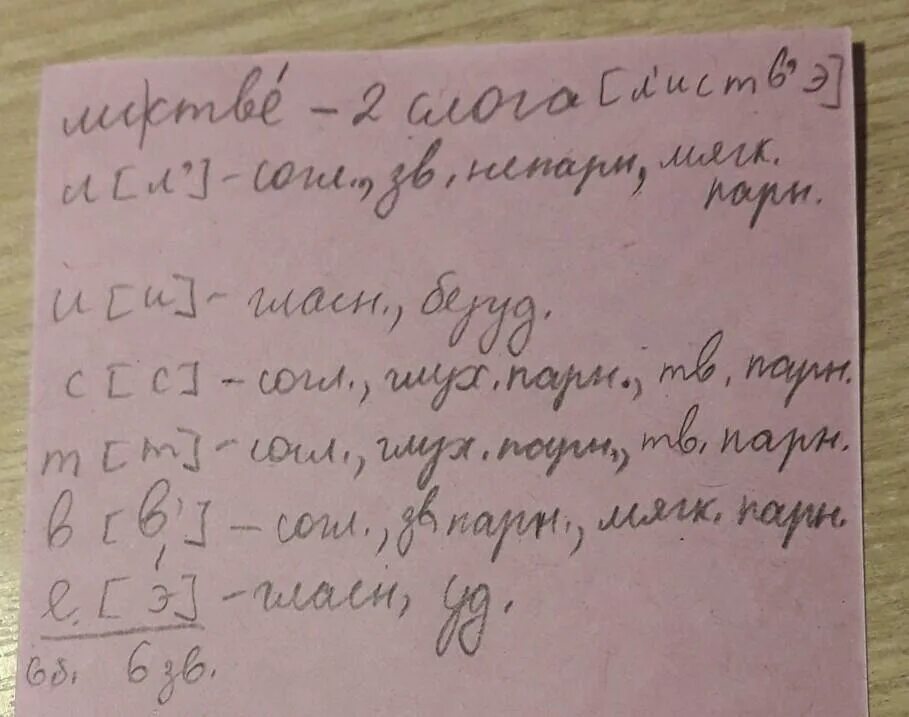 ли|стве́ – 2 слога [л'иств'э]
л [л'] – согл., зв. непарн, мягк.
парн.
и [и] – гласн., безуд.
с [с] – согл., глух. парн., тв. парн.
т [т] – согл., глух. парн., тв. парн.
в [в'] – согл., зв парн., мягк. парн.
е [э́] – гласн, уд.
6б. 6 зв.